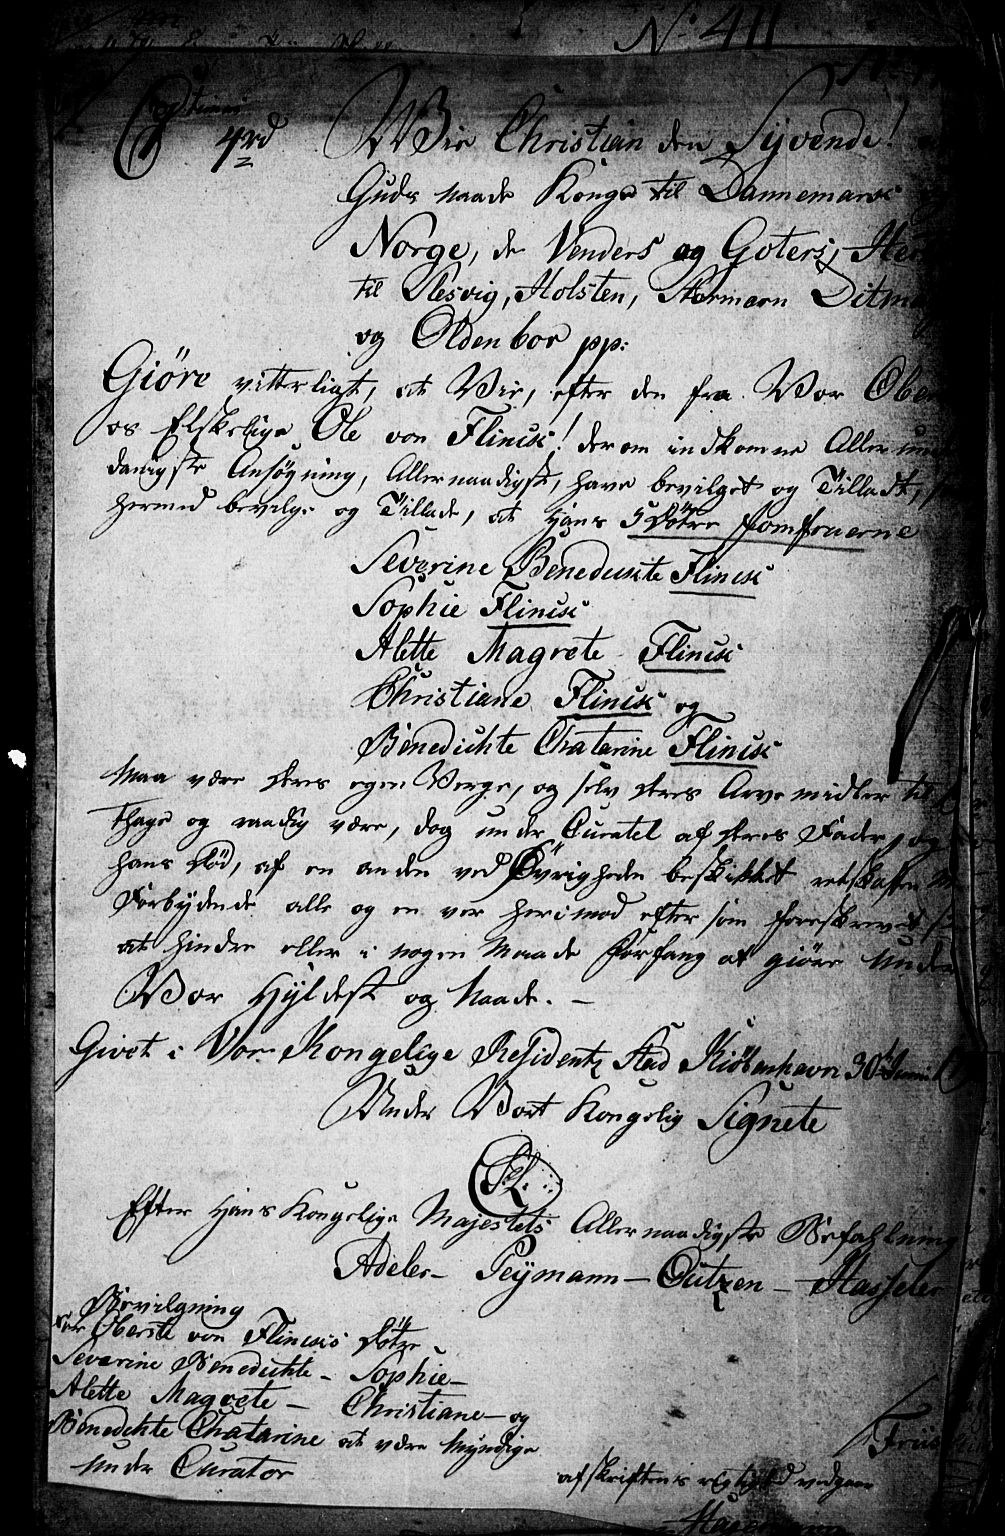 No 411
4rd Wir Christian den Syvende!
Guds Naade Konge til Dannemark
Norge, de Venders og Goters,
til Slesvig, Holsten, Stormarn
og Oldenbor pp:
Giöre vitterligt, at Wir, efter den fra Vor
os Elskelige Ole von Flindt! derom indkomne
danigste Ansøgning, Allernaadigst, have bevilget og Tilladt,
hermed bevilge og Tillade, at Hans 5 Døtre Jomfruerne
Severine Benedickte Flindt
Sophie Flindt
Alette Magrete Flindt
Christiane Flindt og
Benedichte Chatarine Flindt
Maa være deres egen Verge, og selv deres Arve midler til
thage og raadig være, dog under Curatel af deres Fader,
hans Død, af en anden ved Øvrigheden beskikket retskaffen
Forbydende alle og en ver herimod efter som foreskrevet
at hindre eller i nogen Maade Forfang at giöre Under
Vor Hyldest og Naade. –
Givet i Vor Kongelige Residentz Stad Kiöbenhavn 30te Junii
Under Vort Kongelig Signete
Efter Hans Kongelige Majestets Allernaadigste Befahlning
Adeler – Peymann – Outzen –
Bevilgning
for Oberste von Flindts Døtre
Severine Benedichte – Sophie –
Alette Magrete – Christiane – og
Benedichte Chatarine at være Myndige
Under Curator
afskriftens rigtighed vedgaar